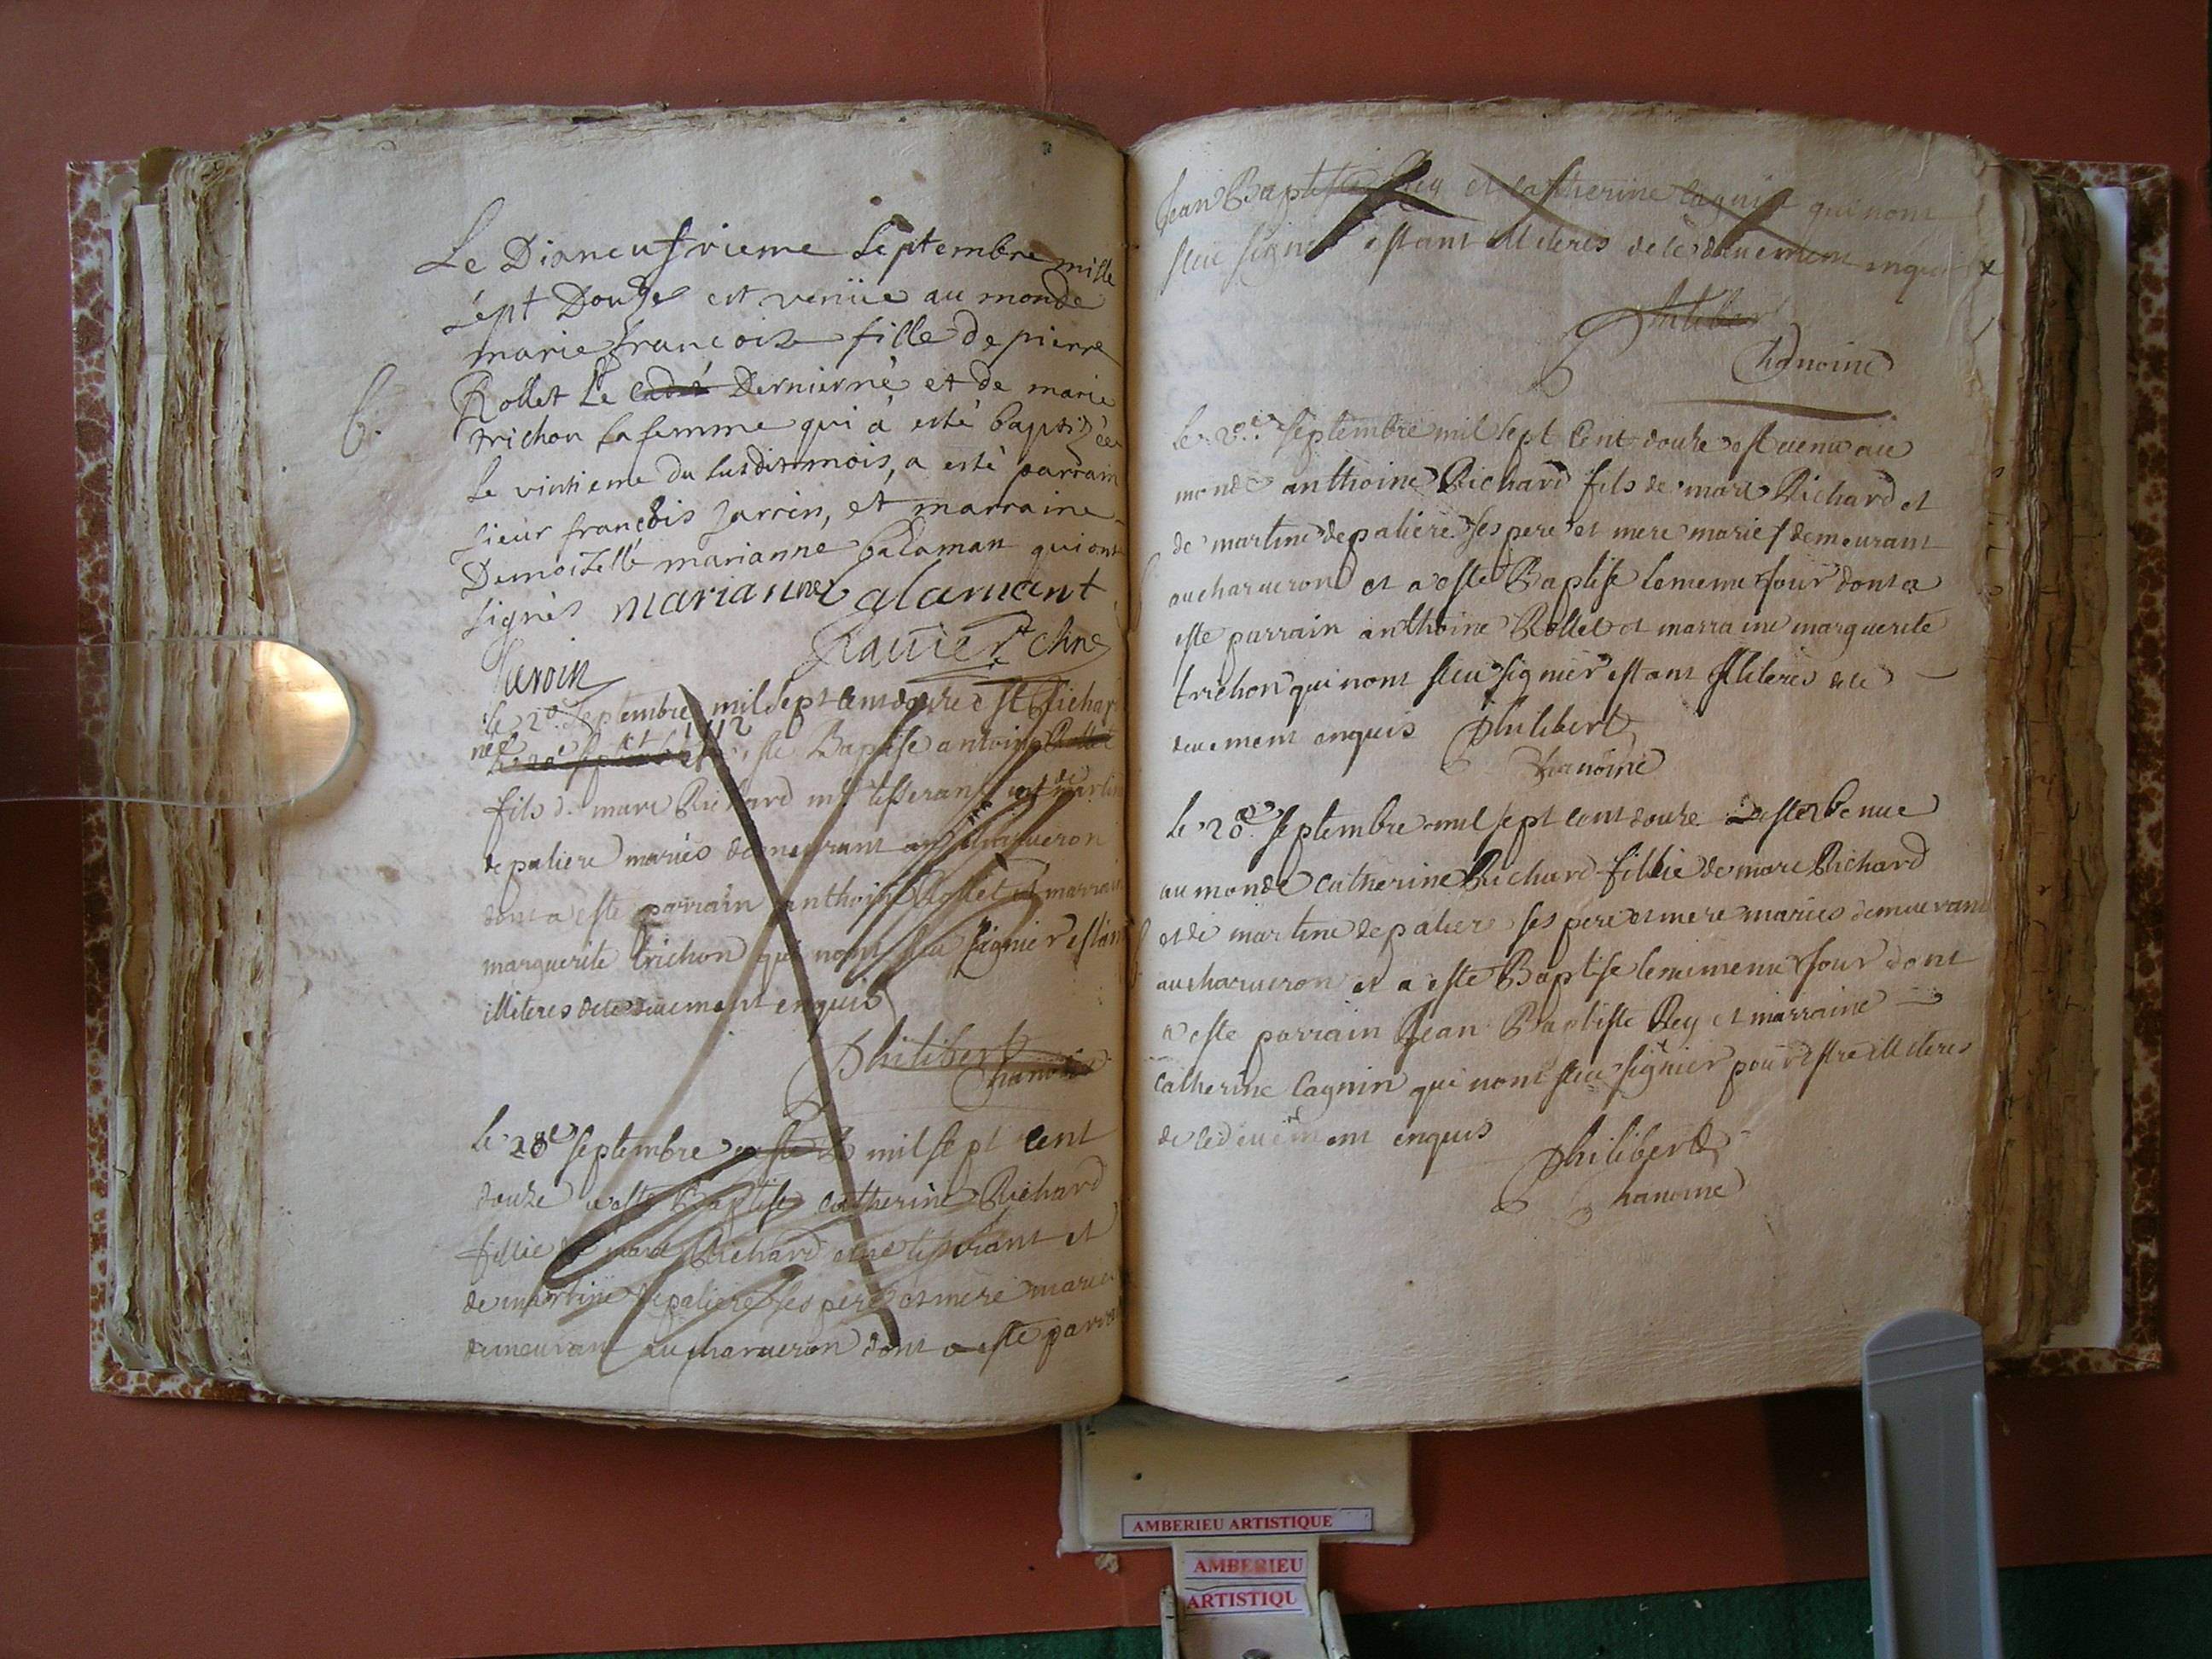 Le Dixneufvieme Septembre mille
sept Douze est venüe au monde
marie francoise fille de pierre
Rollet Le cadet Dernierné et de marie
trichon sa femme qui à esté baptizée
Le vintieme du susdit mois, a esté parrain
sieur francois Jarrin, et marraine
Demoizelle marianne Galaman qui ont
signés marianne galamant
B.
le 20 Septembre mil sept cent douze Richar
1712 este Baptise antoine Rollet
fils de marc Richard tisserant martin
depaliere mariés demeurant au charueron
dont a este parrain anthoine Rollet et marrain
marguerite trichon qui nont sceu signier estant
illiteres de ce deuement enquis
Philibert
Chanoine
le 28e septembre mil sept cent
douze a este Baptise catherine Richard
fillie de marc Richard tisserant et
de martine depaliere ses pere et mere maries
demeurant au charueron dont a este parra
Jean Baptiste Rey et catherine cagnin qui nont
sceu signer estant illiteres de ce deuement enquis
Philibert
Chanoine
le 20e septembre mil sept cent douze est uenu au
monde anthoine Richard fils de marc Richard et
de martine depaliere ses pere et mere maries demeurant
au charueron et a este Baptise le meme jour dont a
este parrain anthoine Rollet et marraine marguerite
trichon qui nont sceu signier estant illiteres de ce
deuement enquis Philibert
Chanoine
le 28e septembre mil sept cent douze est venue
au monde catherine Richard fillie de marc Richard
et de martine depalier ses pere et mere maries demeurant
au charueron et a este Baptise le meme jour dont
a este parrain Jean Baptiste Rey et marraine
catherine Cagnin qui nont sceu signier pour estre illiteres
de ce deuement enquis
Philibert
Chanoine
AMBERIEU ARTISTIQUE
AMBERIEU
ARTISTIQU